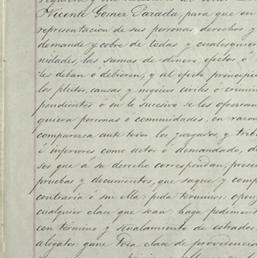 Vicente Gomez Parada, para que en
representacion de sus personas derechos y
demande y cobre de todas y cualesquiera
nidades, las sumas de dinero, efectos ó
les deban ó debieren, y al efecto principie
los pleitos, causas y negocios civiles ó crimin
pendientes ó en lo sucesivo se les ofrezcan
quiera personas ó comunidades, en razon
comparezca ante todos los juzgados y trib
é inferiores como actor ó demandado, de
sos que á su derecho correspondan, prese
pruebas y documentos, que saque y comp
contraria ó sin ella: pida terminos: opong
cualquier clase que sean: haga pedimen
con termino y señalamiento de estrados,
alegatos: gane toda clase de providencias